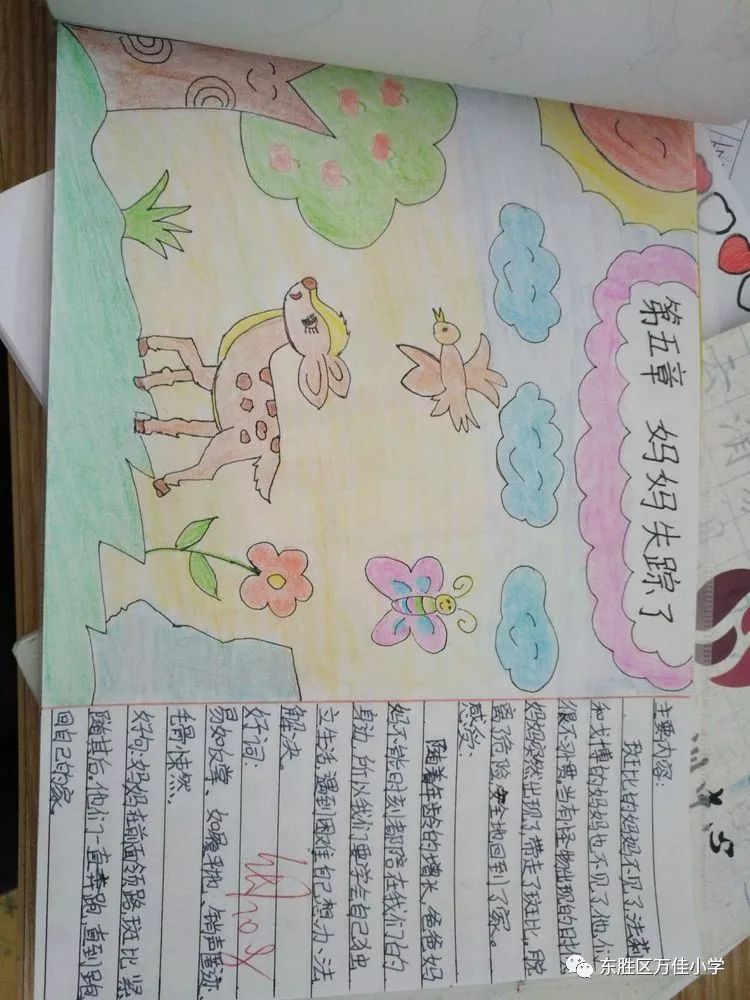 第五章 妈妈失踪了
主要内容:
班比的妈妈不见了,法莉
和戈博的妈妈也不见了,他们
很不习惯,当有怪物出现的时候
妈妈突然出现了,带走了班比,脱
离危险,安全地回到了家。
感受:
随着年龄的增长,爸爸妈
妈不能时刻都陪在我们的
身边,所以我们要学会自己独
立生活,遇到困难自己想办法
解决。
好词:
易如反掌、如履平地、销声匿迹、
毛骨悚然、
好句:妈妈在前面领路,班比紧
随其后,他们一直奔跑,直到跑
回自己的家。
东胜区万佳小学